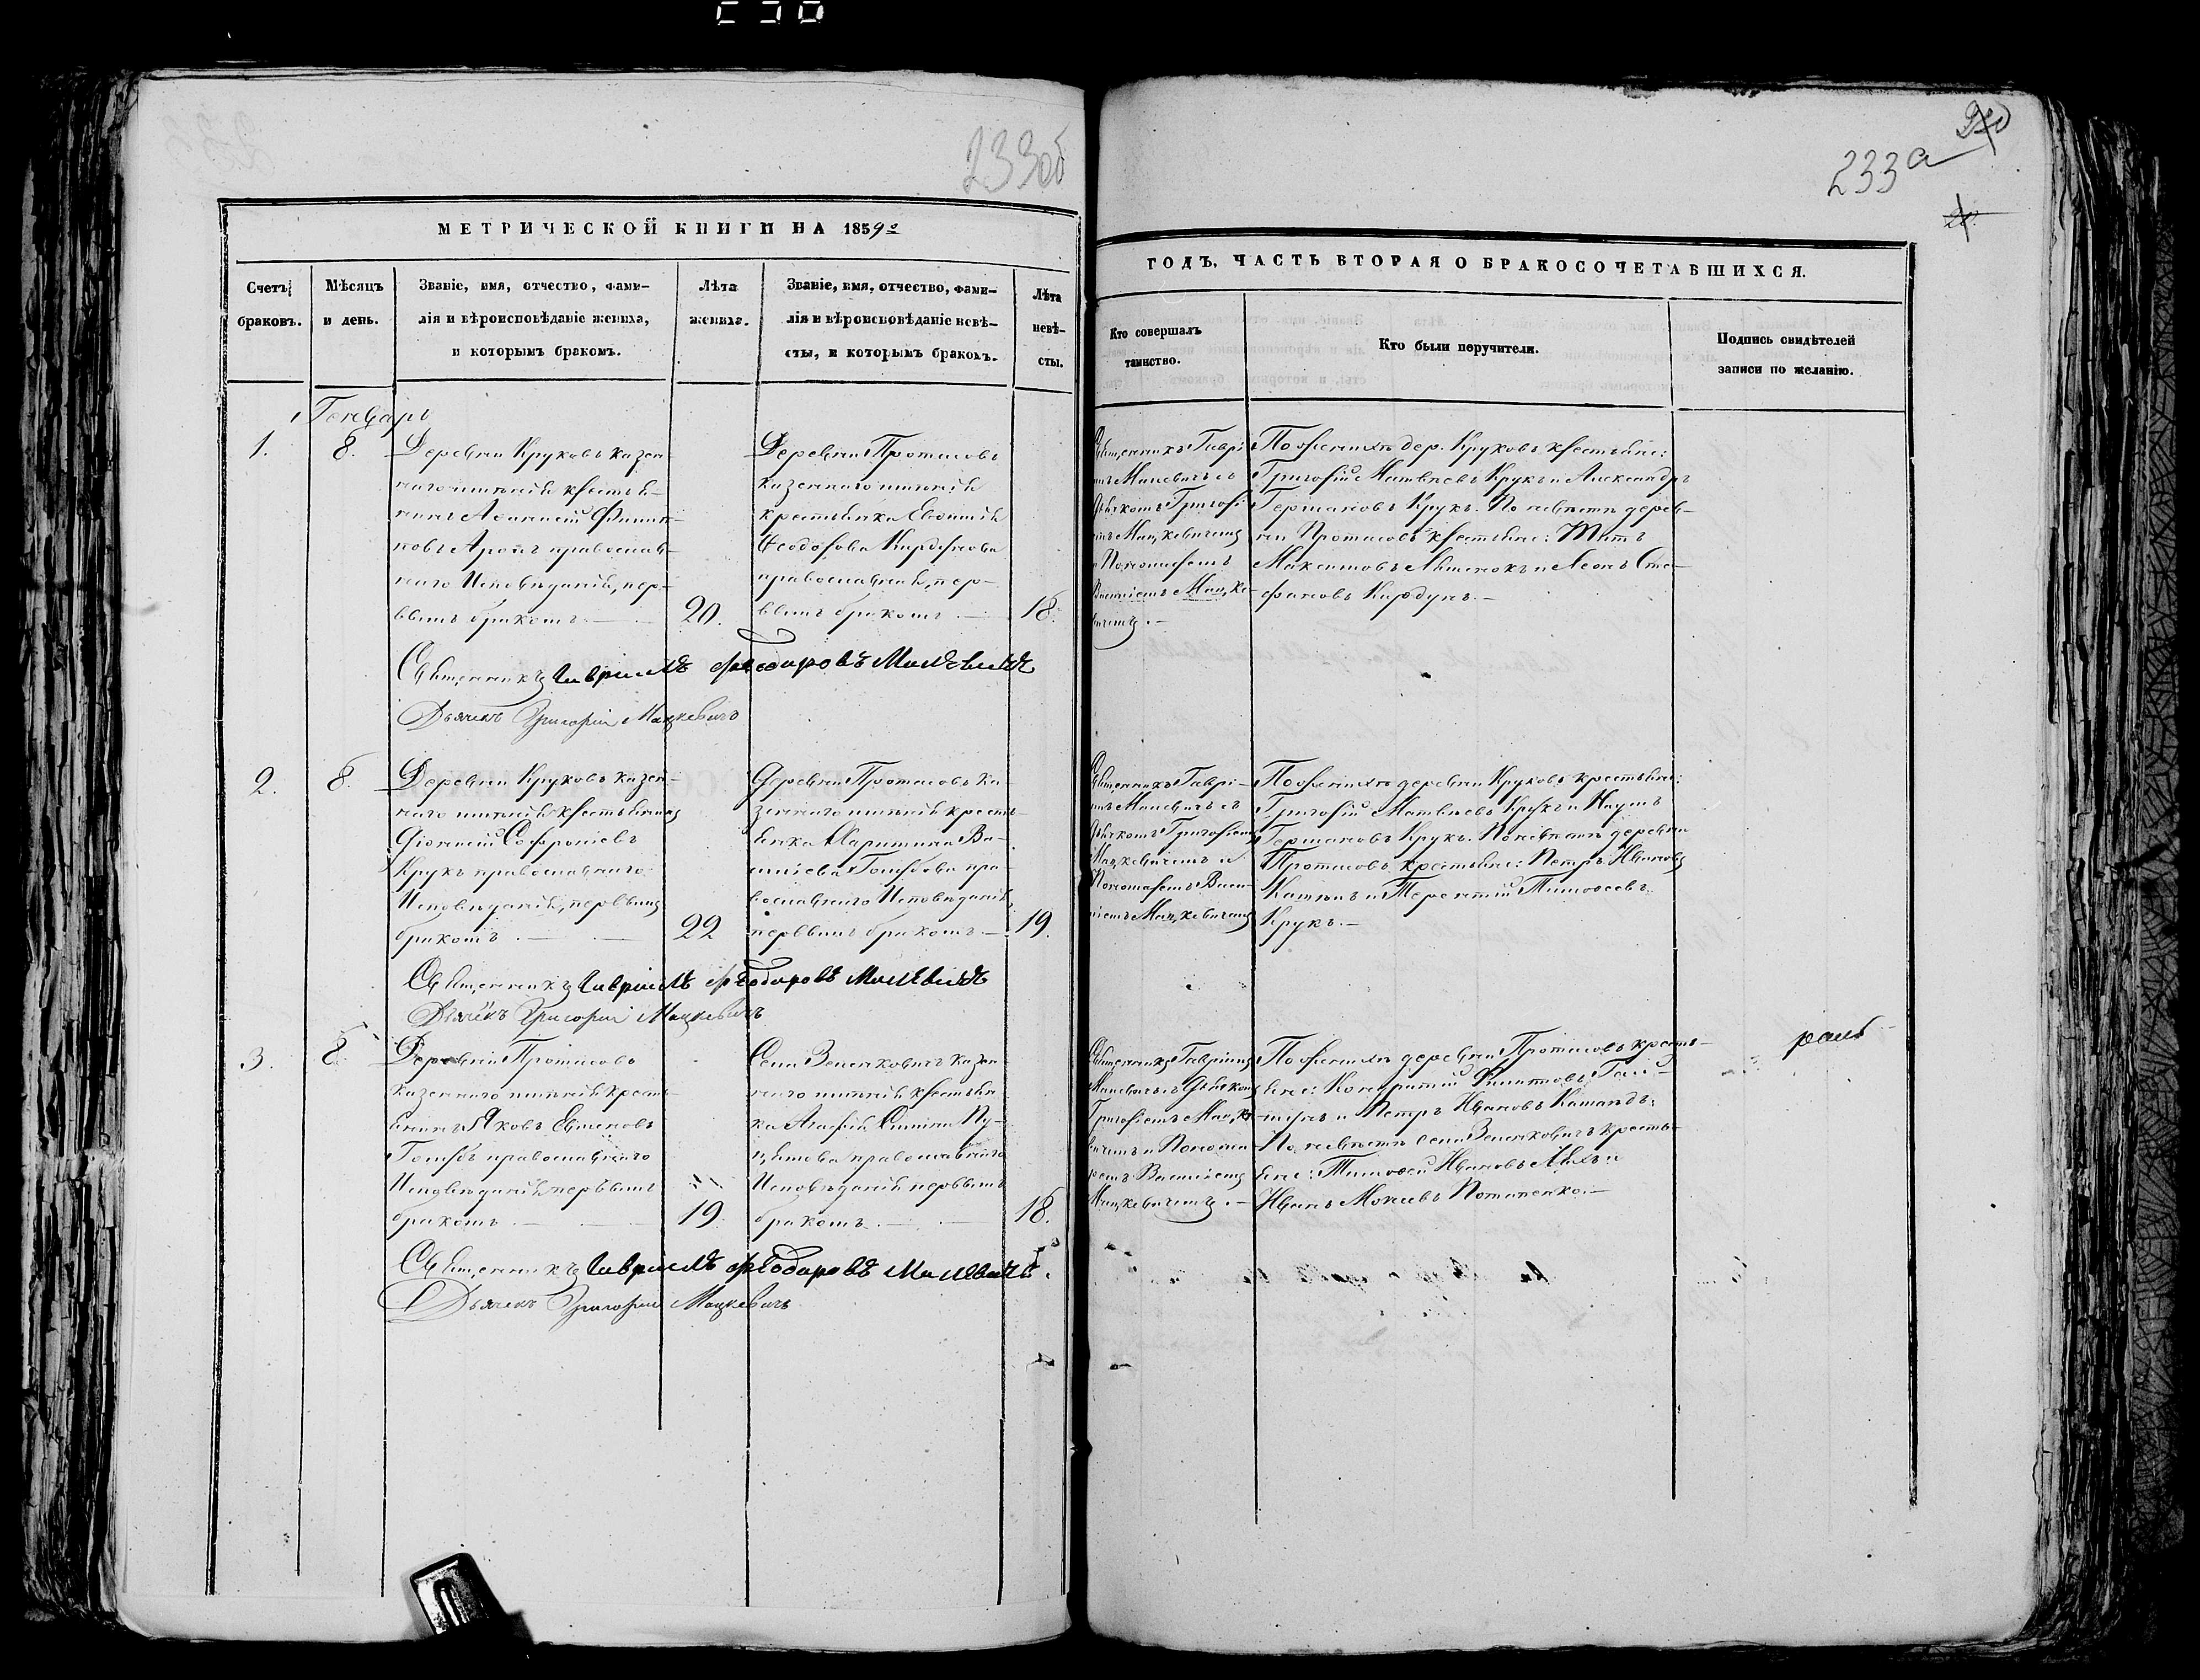 233об
233а
МЕТРИЧЕСКОЙ КНИГИ НА 1859й
ГОДЪ, ЧАСТЬ ВТОРАЯ О БРАКОСОЧЕТАВШИХСЯ.
Счетъ браковъ.
Мѣсяцъ и день.
Званіе, имя, отчество, фами-
лія и вѣроисповѣданіе жениха,
и которымъ бракомъ.
Лѣта жениха.
Званіе, имя, отчество, фами-
лія и вѣроисповѣданіе невѣ-
сты, и которымъ бракомъ.
Лѣта
невѣ-
сты.
Кто совершалъ
таинство.
Кто были поручители.
Подпись свидѣтелей
записи по желанію.
Генварь
1.
8.
Деревни Круковъ казен-
наго имѣнія крестья-
нинъ Афанасій Филип-
повъ православ-
наго Исповѣданія, пер-
вымъ бракомъ
20.
Деревни Протасовъ
казеннаго имѣнія
крестьянка Евфимія
Ѳеодорова
православная, пер-
вымъ бракомъ
18.
Священникъ Гаврі-
илъ Малевичъ съ
Дьячкомъ Григорі-
емъ Мацкевичемъ
и Пономаремъ
Василіемъ Мацке-
вичемъ.
По женихѣ дер. Круковъ крестьяне:
Григорій Матвѣевъ Крукъ и Александръ
Германовъ Крукъ. По невѣстѣ дерев-
ни Протасовъ крестьяне: Титъ
Максимовъ и Леонъ Сте-
фановъ Кардунъ.
Священникъ Гавріилъ Феодоровъ Малевичъ
Дьячекъ Григорій Мацкевичъ
2.
8.
Деревни Круковъ казен-
наго имѣнія крестьянинъ
Діонисій Софроніевъ
Крукъ православнаго
Исповѣданія, первымъ
бракомъ
22
Деревни Протасовъ ка-
зеннаго имѣнія кресть-
янка Марина Ва-
силіева Голубова пра-
вославнаго Исповѣданія,
первымъ бракомъ
19.
Священникъ Гаврі-
илъ Малевичъ съ
Дьячкомъ Григоріемъ
Мацкевичемъ и
Пономаремъ Васи-
ліемъ Мацкевичемъ
По женихѣ деревни Круковъ крестьяне:
Григорій Матвѣевъ Крукъ и Наумъ
Германовъ Крукъ. По невѣстѣ деревни
Протасовъ крестьяне: Петръ Ивановъ
и Терентій Тимоѳеевъ
Крукъ.
Священникъ Гавріилъ Феодоровъ Малевичъ
Дьячекъ Григорій Мацкевичъ
3.
8.
Деревни Протасовъ
казеннаго имѣнія кресть-
янинъ Яковъ
Голубъ православнаго
Исповѣданія первымъ
бракомъ
19.
Села Зеленковичъ казен-
наго имѣнія крестьян-
ка Агафія
православнаго
Исповѣданія первымъ
бракомъ
18.
Священникъ Гавріилъ
Малевичъ съ Дьячкомъ
Григоріемъ Мацке-
вичемъ и Понома-
ремъ Василіемъ
Мацкевичемъ.
По женихѣ деревни Протасовъ кресть-
яне: Кондратій
и Петръ Ивановъ
По невѣстѣ села Зеленковичъ кресть-
яне: Тимоѳей Ивановъ и
Иванъ Потапенко.
Священникъ Гавріилъ Феодоровъ Малевичъ.
Дьячекъ Григорій Мацкевичъ